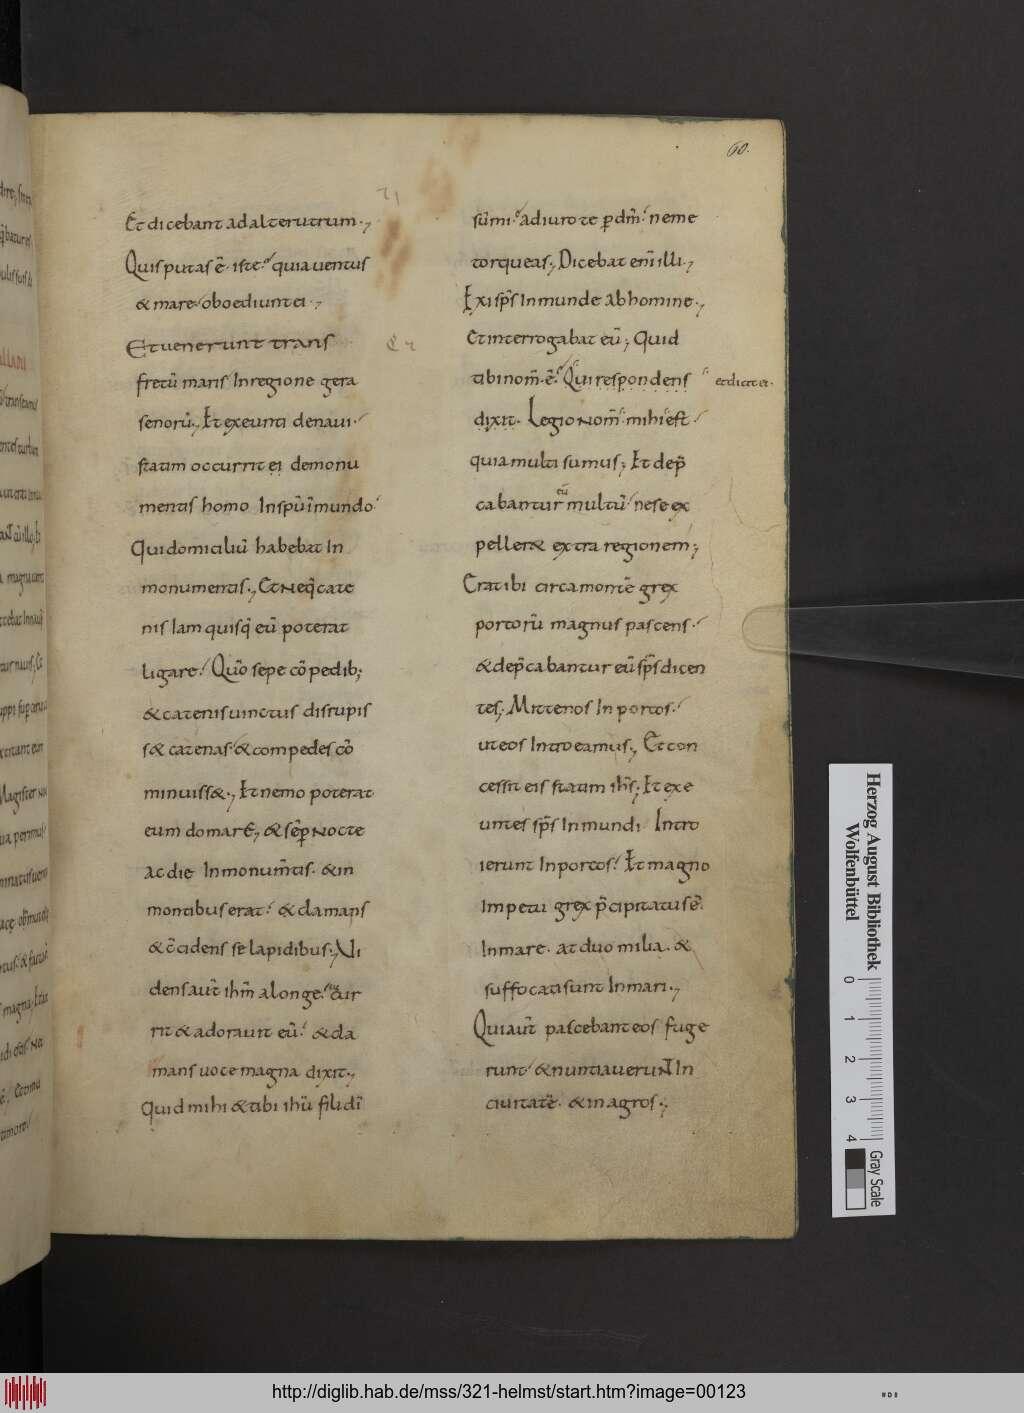 60.
Et dicebant ad alterutrum.,
Quis putas ē. iste. quia uentus
& mare oboediunt ei.,
Et uenerunt trans
fretū maris In regione gera
senorū., Et exeunti de naui.
statim occurrit ei demonu
mentis homo In spū īmundo
Qui domiciliū habebat In
monumentis., Et Neq; cate
nis Iam quisq̄ eū poterat
ligare. Qūo sepe cō pedib;
& catenis uinctus disrupis
s& catenas. & compedes cō
minuiss&., Et nemo poterat
eum domare., & sēp Nocte
ac die In monum̄tis. & in
montibus erat. & clamans
& c̄cidens se lapidibus., Vi
dens aut̄ ihm̄ a longe. cur
rit & adorauit eū. & cla
mans uoce magna dixit.,
Quid mihi & tibi ihū fili dī
sum̄i. adiuro te p dm̄. ne me
torqueas., Dicebat enī illi.,
Exi sp̄s Inmunde ab homine.,
Et interrogabat eū; Quid
tibi nom̄. ē. Qui respondens et dicit ei.
dixit. Legio Nom̄ mihi est.
quia multi sumus; Et dep̄
cabantur eū multū ne se ex
peller& extra regionem;
Erat ibi circa montē grex
porcorū magnus pascens.
& dep̄cabantur eū sp̄s dicen
tes; Mitte nos In porcos.
ut eos Introeamus., Et con
cessit eis statim ihs̄; Et exe
untes sp̄s Inmundi Intro
ierunt In porcos. Et magno
Impetu grex p̄cipitatus ē.
In mare. ad duo milia. &
suffocati sunt In mari.,
Qui aut̄ pascebant eos fuge
runt & nuntiauerunt In
ciuitatē. & in agros.,
Herzog August Bibliothek
Wolfenbüttel
0 1 2 3 4
Gray Scale
http://diglib.hab.de/mss/321-helmst/start.htm?image=00123